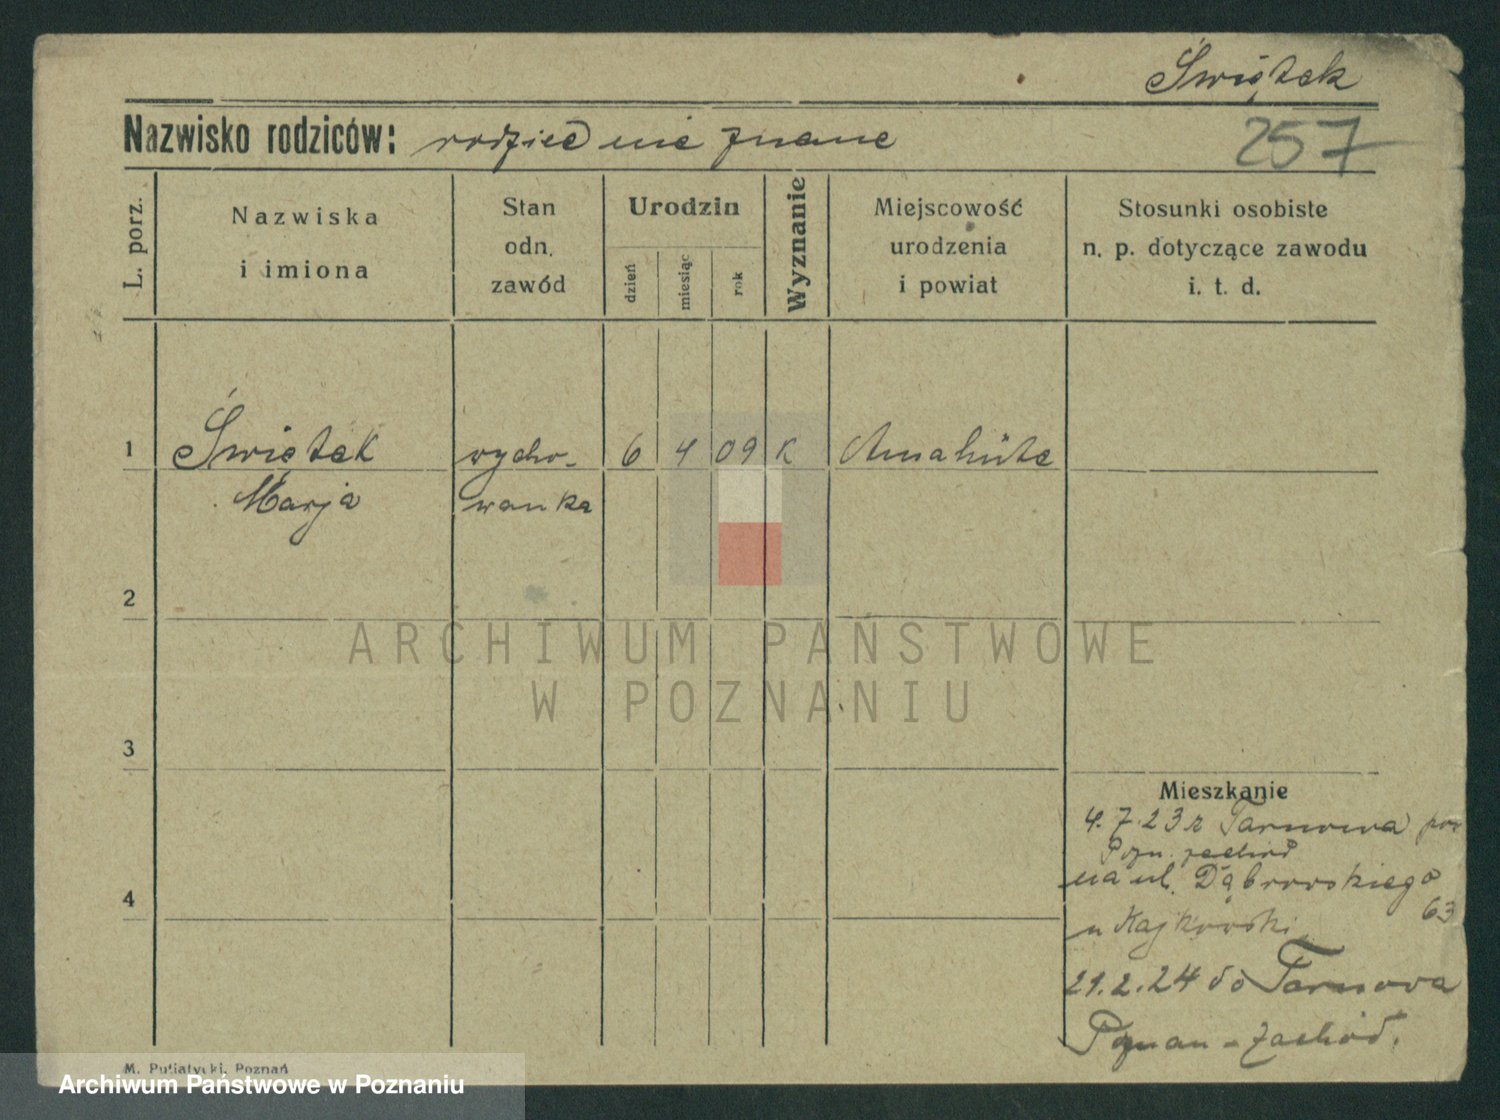 Świętek
Nazwisko rodziców: rodzice nie znane
257
L. porz.
Nazwiska
i imiona
Stan
odn.
zawód
Urodzin
dzień
miesiąc
rok
Wyznanie
Miejscowość
urodzenia
i powiat
Stosunki osobiste
n. p. dotyczące zawodu
i. t. d.
1
Świętek
Marja
wycho-
wanka
6 4 09 K
2
3
4
Mieszkanie
4.7.23 z Tarnowa pow
Pozn. zachód
na ul. Dąbrowskiego
63
u Kajkowski
21.2.24 do Tarnowa
Poznan - Zachód.
ARCHIWUM PAŃSTWOWE
W POZNANIU
M. Putiatycki, Poznań
Archiwum Państwowe w Poznaniu